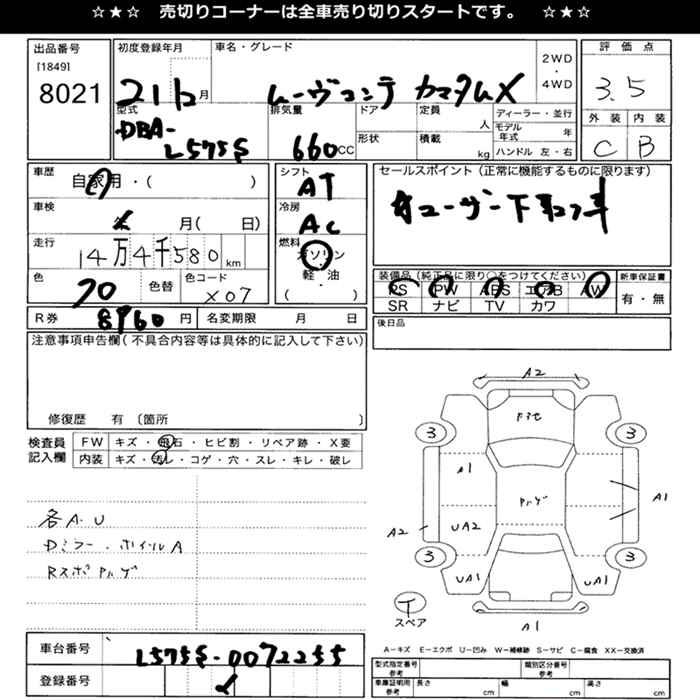 ☆★☆ 売切りコーナーは全車売り切りスタートです。 ☆★☆
出品番号
[1849]
8021
初度登録年月
21 12月
車名・グレード
ムーヴコンテ カスタムX
2WD
・
4WD
評価点
3.5
外装 内装
C B
型式
DBA-
L575S
排気量
660CC
ドア
形状
定員
人
積載
kg
ディーラー・並行
モデル年式 年
ハンドル 左・右
車歴
自家用・( )
車検
月( 日)
走行
14万4千580km
色
クロ
色替
色コード
X07
シフト
AT
冷房
AC
燃料
ガソリン
・
軽・油
( )
セールスポイント(正常に機能するものに限ります)
ユーザー下
装備品(純正品に限り○をつけてください)
PS PW ABS エアB AW
SR ナビ TV カワ
新車保証書
有・無
R券
8960円
名変期限 月 日
後日品
注意事項申告欄(不具合内容等は具体的に記入して下さい)
修復歴 有〔箇所 〕
検査員
記入欄
FW キズ・飛石・ヒビ割・リペア跡・X要
内装 キズ・汚レ・コゲ・穴・スレ・キレ・破レ
各A.U
Dミラー・ホイルA
A2
3 3
A1
A1
A2
UA2
3 3
UA1 UA1
A1
T
スペア
A−キズ E−エクボ U−凹み W−補修跡 S−サビ C−腐食 XX−交換済
車台番号
L575S-0072255
登録番号
型式指定番号
参考
類別区分番号
参考
車庫証明用
参考
長さ cm
幅 cm
高さ cm